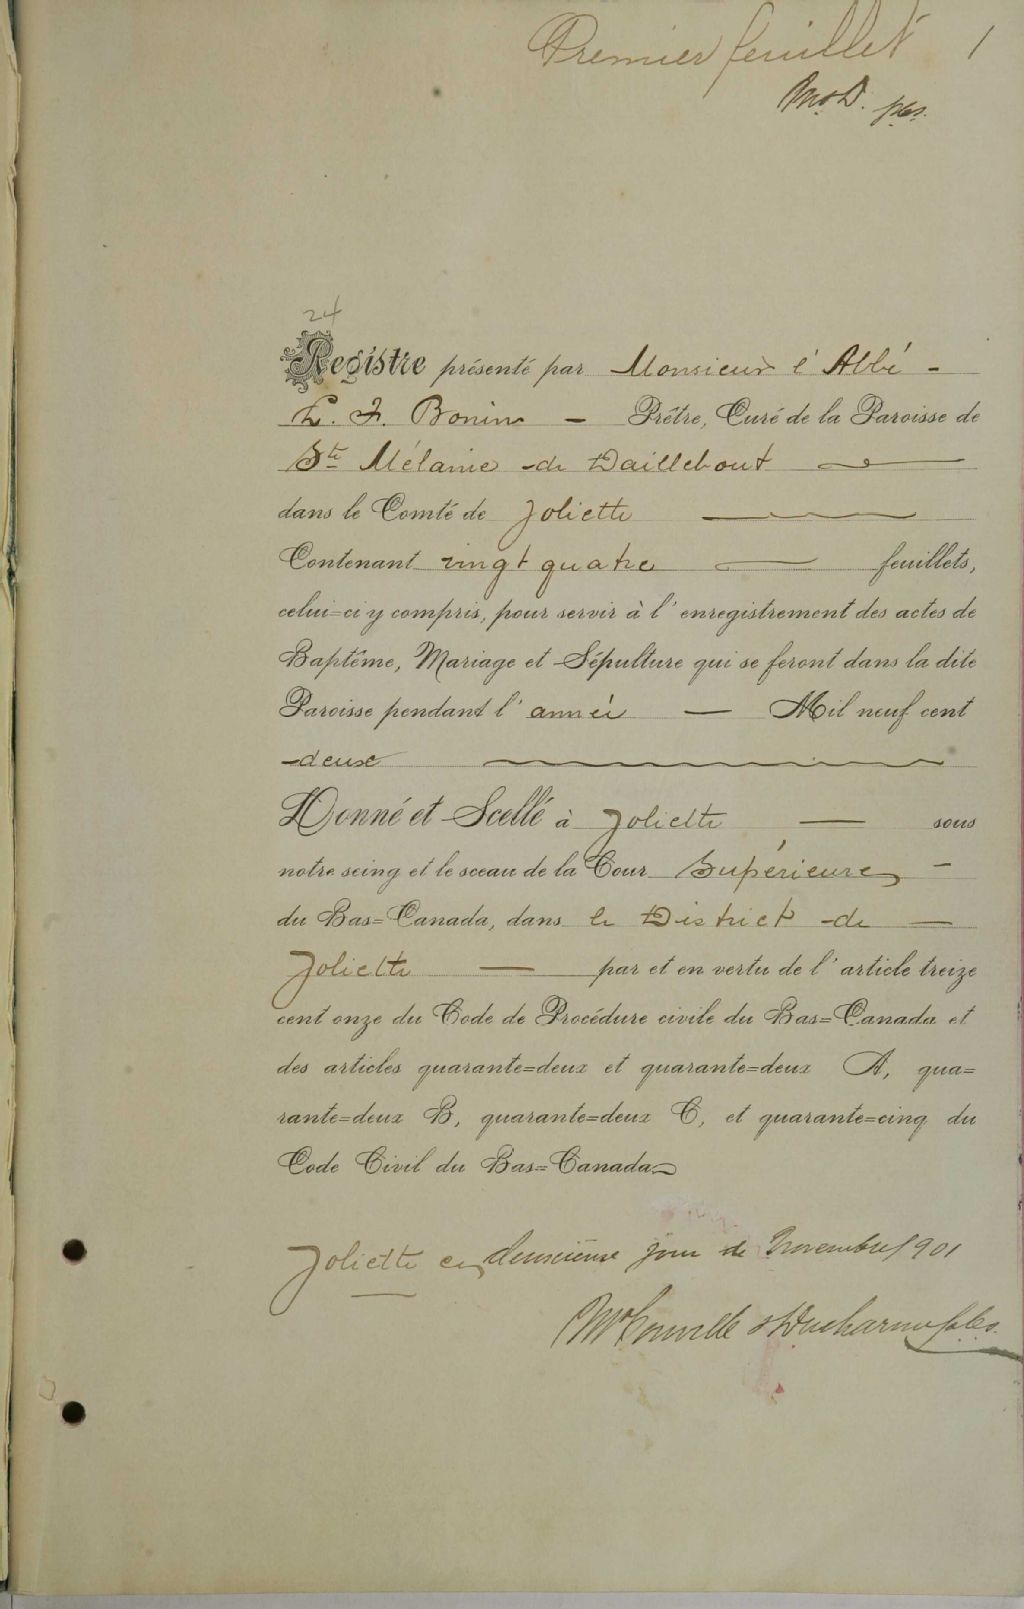 Premier feuillet 1
M & D. p.c.s.
24
Registre présenté par Monsieur l'Abbé -
F. Bonin - Prêtre, Curé de la Paroisse de
Ste Mélanie de Daillebout
dans le Comté de Joliette
Contenant vingt quatre feuillets,
celui=ci y compris, pour servir à l'enregistrement des actes de
Baptême, Mariage et Sépulture qui se feront dans la dite
Paroisse pendant l'année — Mil neuf cent
deux
Donné et Scellé à Joliette — sous
notre seing et le sceau de la Cour Supérieure -
du Bas=Canada, dans le District de —
Joliette — par et en vertu de l'article treize
cent onze du Code de Procédure civile du Bas=Canada et
des articles quarante=deux et quarante=deux A, qua=
rante=deux B, quarante=deux C, et quarante=cinq du
Code Civil du Bas=Canada
Joliette ce deuxième jour de Novembre 1901
& Ducharme p.c.s.